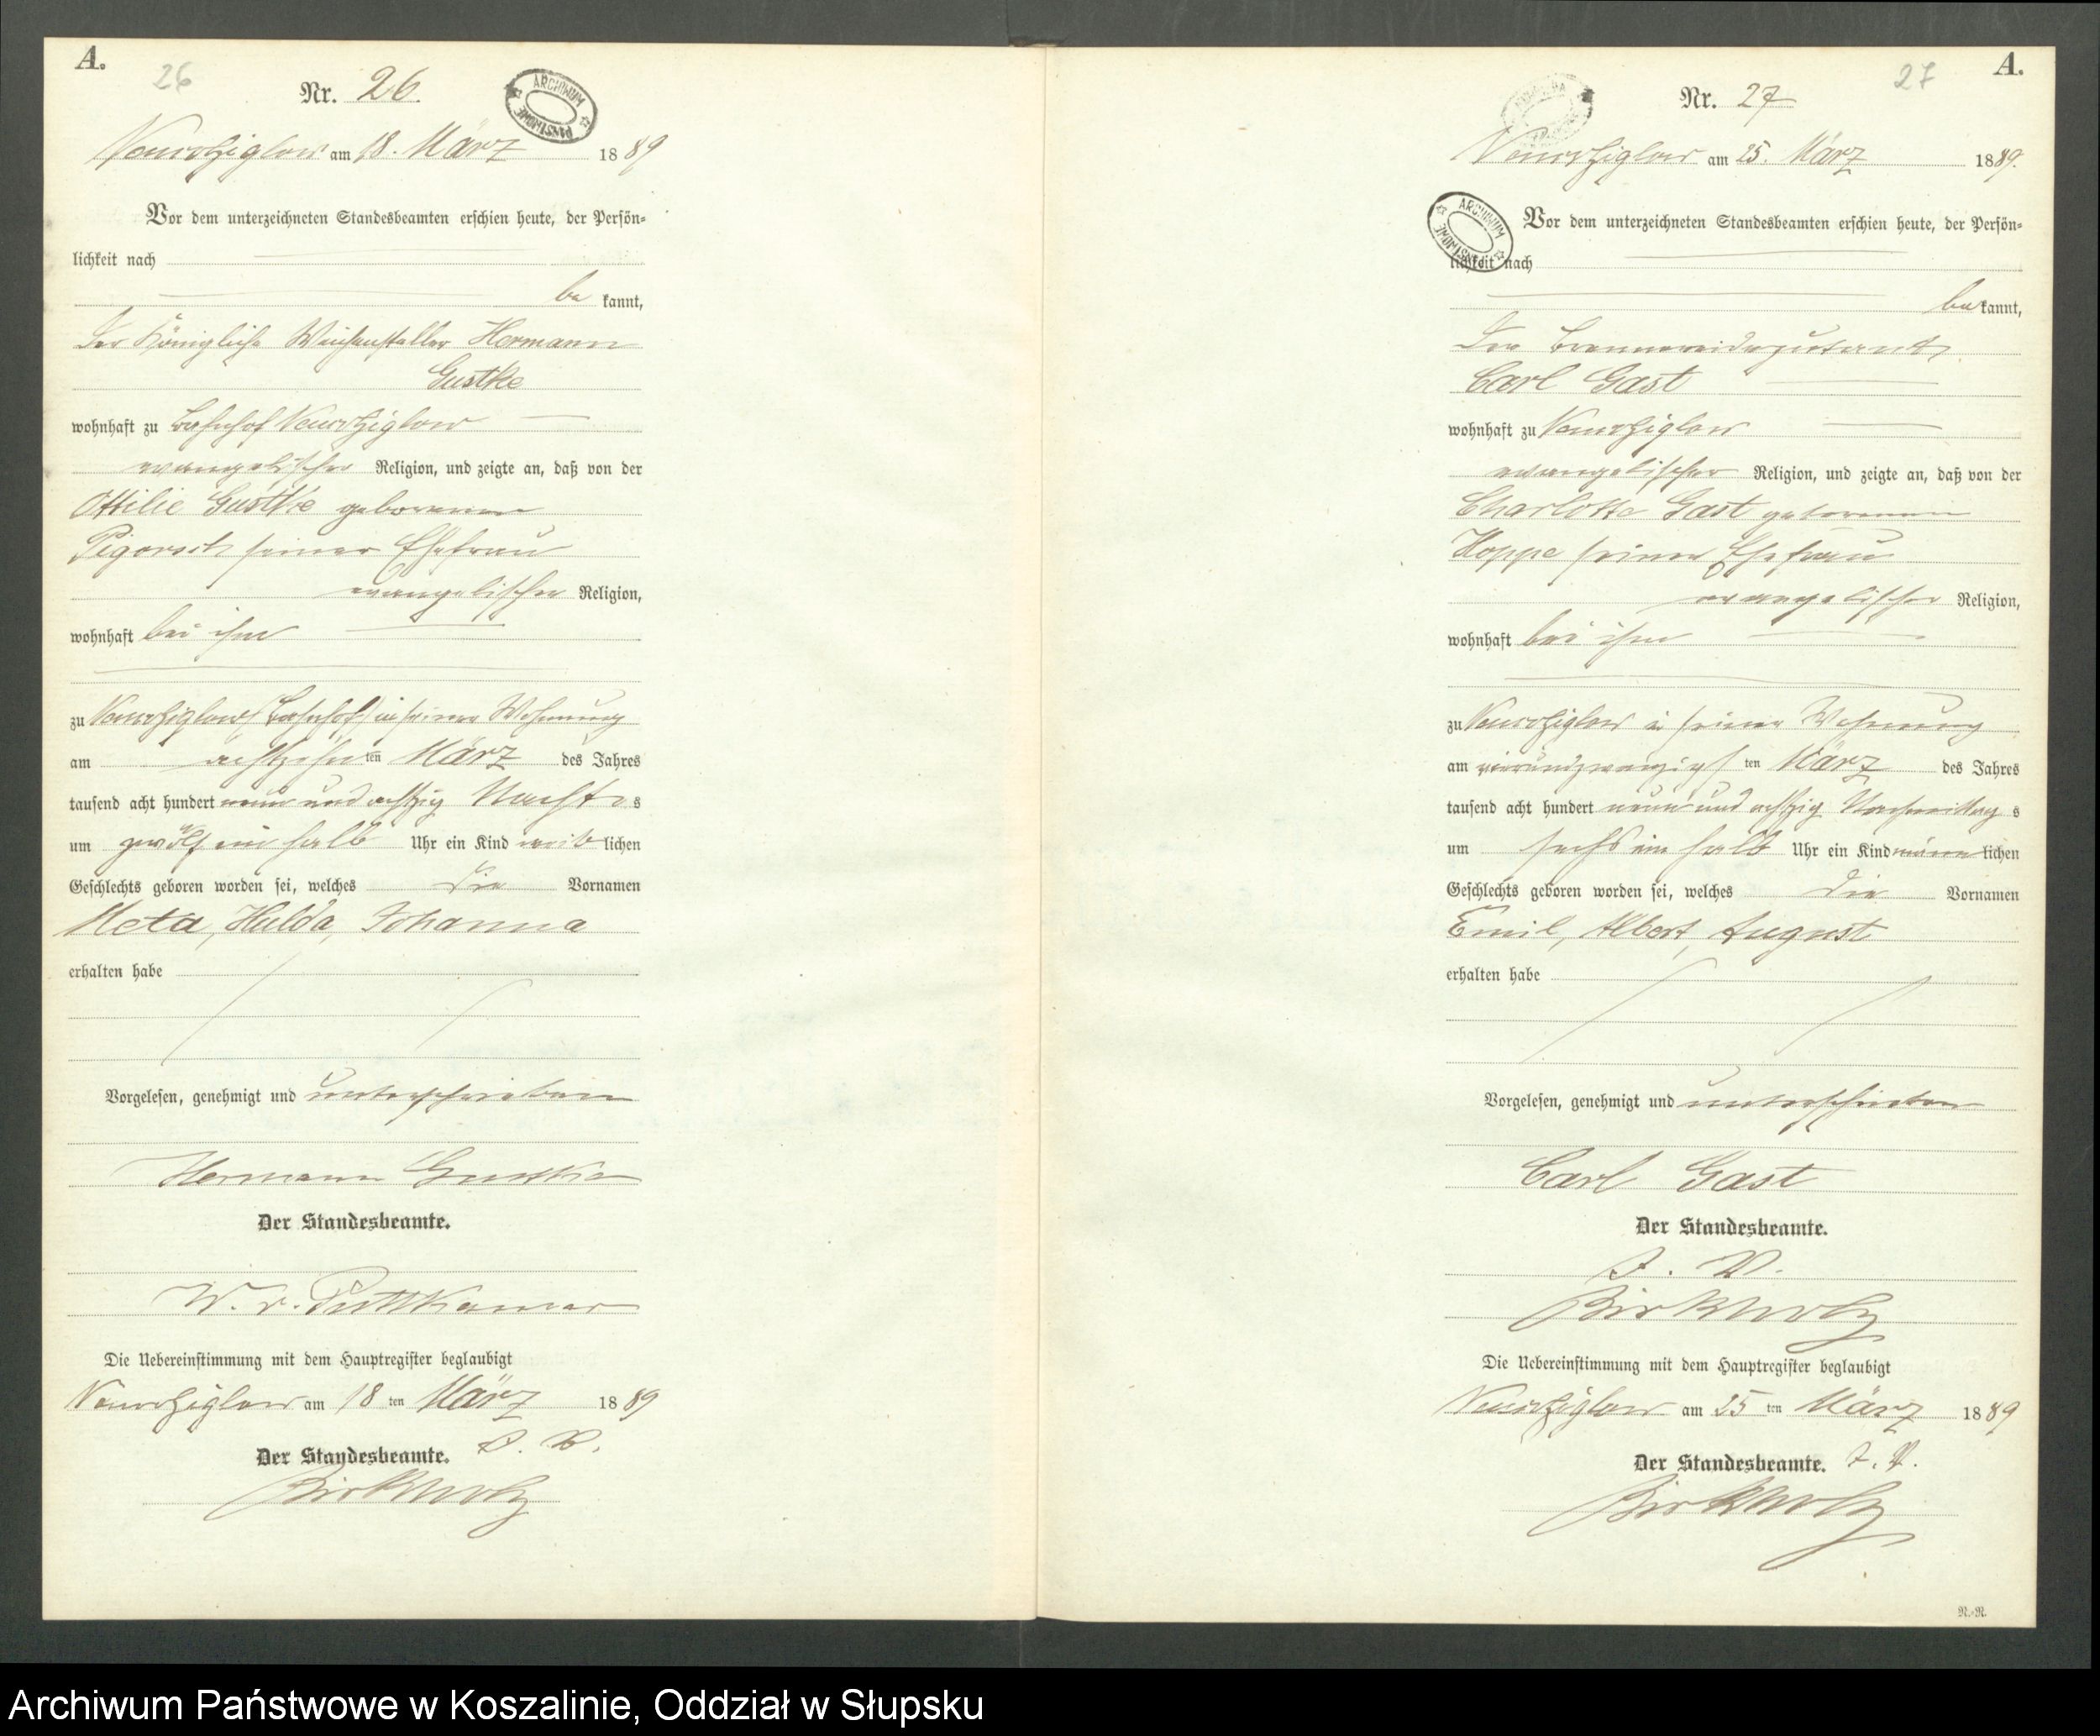 A.
26
Nr. 26.
ARCHIWUM PAŃSTWOWE
Neuwshziglow am 18. März 1889
Vor dem unterzeichneten Standesbeamten erschien heute, der Persön-
lichkeit nach
be kannt,
Der Königliche Weichensteller Hermann
Gustke
wohnhaft zu Bahnhof
evangelischer Religion, und zeigte an, daß von der
Ottilie Gustke geborenen
Pigorsch seiner Ehefrau
evangelischer Religion,
wohnhaft bei ihm
zu (Bahnhof) in seiner Wohnung
am achtzehnten März des Jahres
tausend acht hundert neun und achtzig Nachts
um zwölf ein halb Uhr ein Kind weiblichen
Geschlechts geboren worden sei, welches die Vornamen
Meta, Hulda, Johanna
erhalten habe
Vorgelesen, genehmigt und unterschrieben
Hermann Gustke
Der Standesbeamte.
W. v. Puttkamer
Die Uebereinstimmung mit dem Hauptregister beglaubigt
am 18 ten März 1889
Der Standesbeamte. I. V.
Birkholz
A.
27
Nr. 27
am 25. März 1889.
ARCHIWUM PAŃSTWOWE
Vor dem unterzeichneten Standesbeamten erschien heute, der Persön-
lichkeit nach
bekannt,
Der
Carl Gast
wohnhaft zu
evangelischer Religion, und zeigte an, daß von der
Charlotte Gast geborenen
Hoppe seiner Ehefrau
evangelischer Religion,
wohnhaft bei ihm
zu in seiner Wohnung
am vierundzwanzigsten März des Jahres
tausend acht hundert neun und achtzig Nachmittags
um sechs ein halb Uhr ein Kind männlichen
Geschlechts geboren worden sei, welches die Vornamen
Emil, Albert, August
erhalten habe
Vorgelesen, genehmigt und unterschrieben
Carl Gast
Der Standesbeamte.
I. V.
Birkholz
Die Uebereinstimmung mit dem Hauptregister beglaubigt
am 25 ten März 1889
Der Standesbeamte. I. V.
Birkholz
N.-N.
Archiwum Państwowe w Koszalinie, Oddział w Słupsku